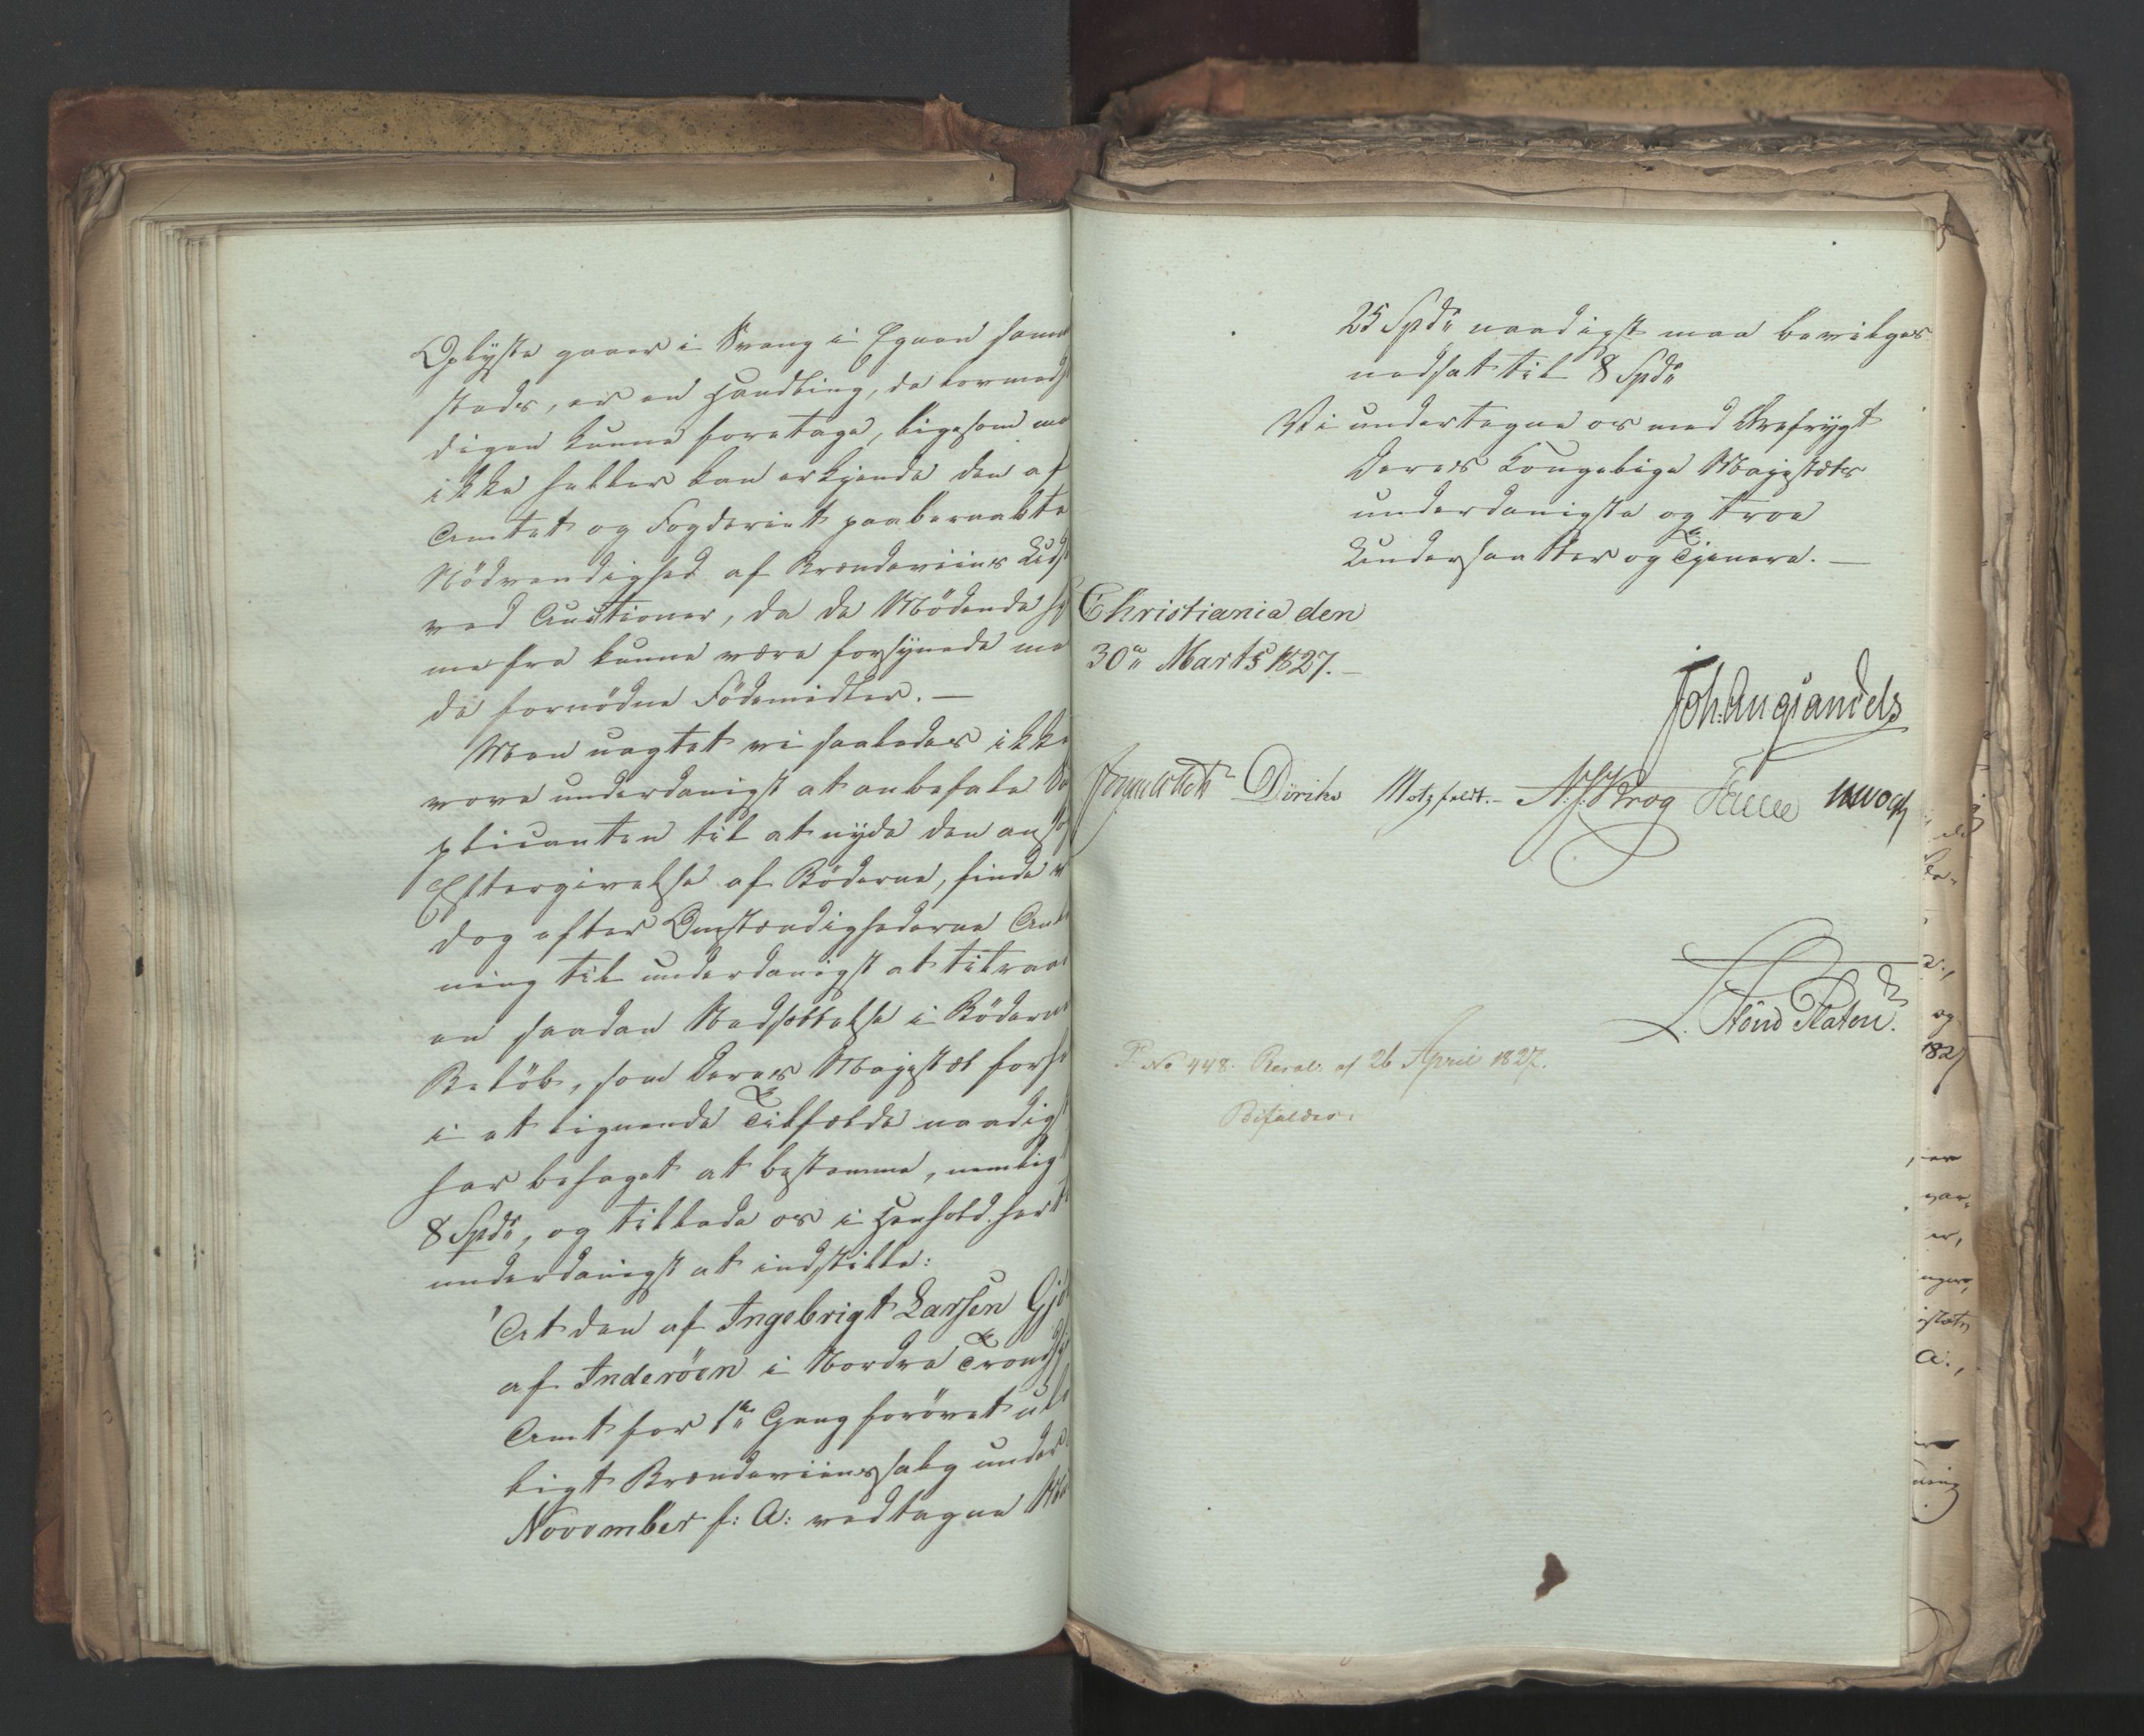 Oplyste gaaer i Svang i Egnen samme
steds, er en Handling, de lovmed
digen kunne foretage, ligesom ma
ikke heller kan erkjende den af
Amtet og Fogderiet paaberaabte
Nödvendighed af Brændeviins Uds
ved Auctioner, da de Mödende hje
me fra kunne være forsynede me
de fornödne Födemidler. —
Men uagtet vi saaledes ikke
vove underdanigst at anbefale Su
plicanten til at nyde den ansö
Eftergivelse af Böderne, finde v
dog efter Omstændighederne Anl
ning til underdanigst at tilraae
en saadan Nedsættelse i Bödernes
Belöb, som Deres Majestæt forhe
i et lignende Tilfælde naadigst
har behaget at bestemme, nemlig
8 Spdr, og tillade os i Henhold hertil
underdanigst at indstille:
At den af Ingebrigt Larsen Gjö
af Inderöen i Nordre Trondhj
Amt for 1ste Gang forövet ulo
ligt Brændeviinssalg under
November f: A: vedtagne Mu
25 Spdr naadigst maa bevilges
nedsat til 8 Spdr
Vi undertegne os med Ærefrygt
Deres Kongelige Majestæts
underdanigste og troe
Undersaatter og Tjenere. —
Christiania den
30te Marts 1827. —
Joh. Aug Sandels
Diriks Motzfeldt. - N. J. Krog Fasting
L. Stoud Platou.
P. No 448. Resol: af 26 April 1827.
Bifaldes.